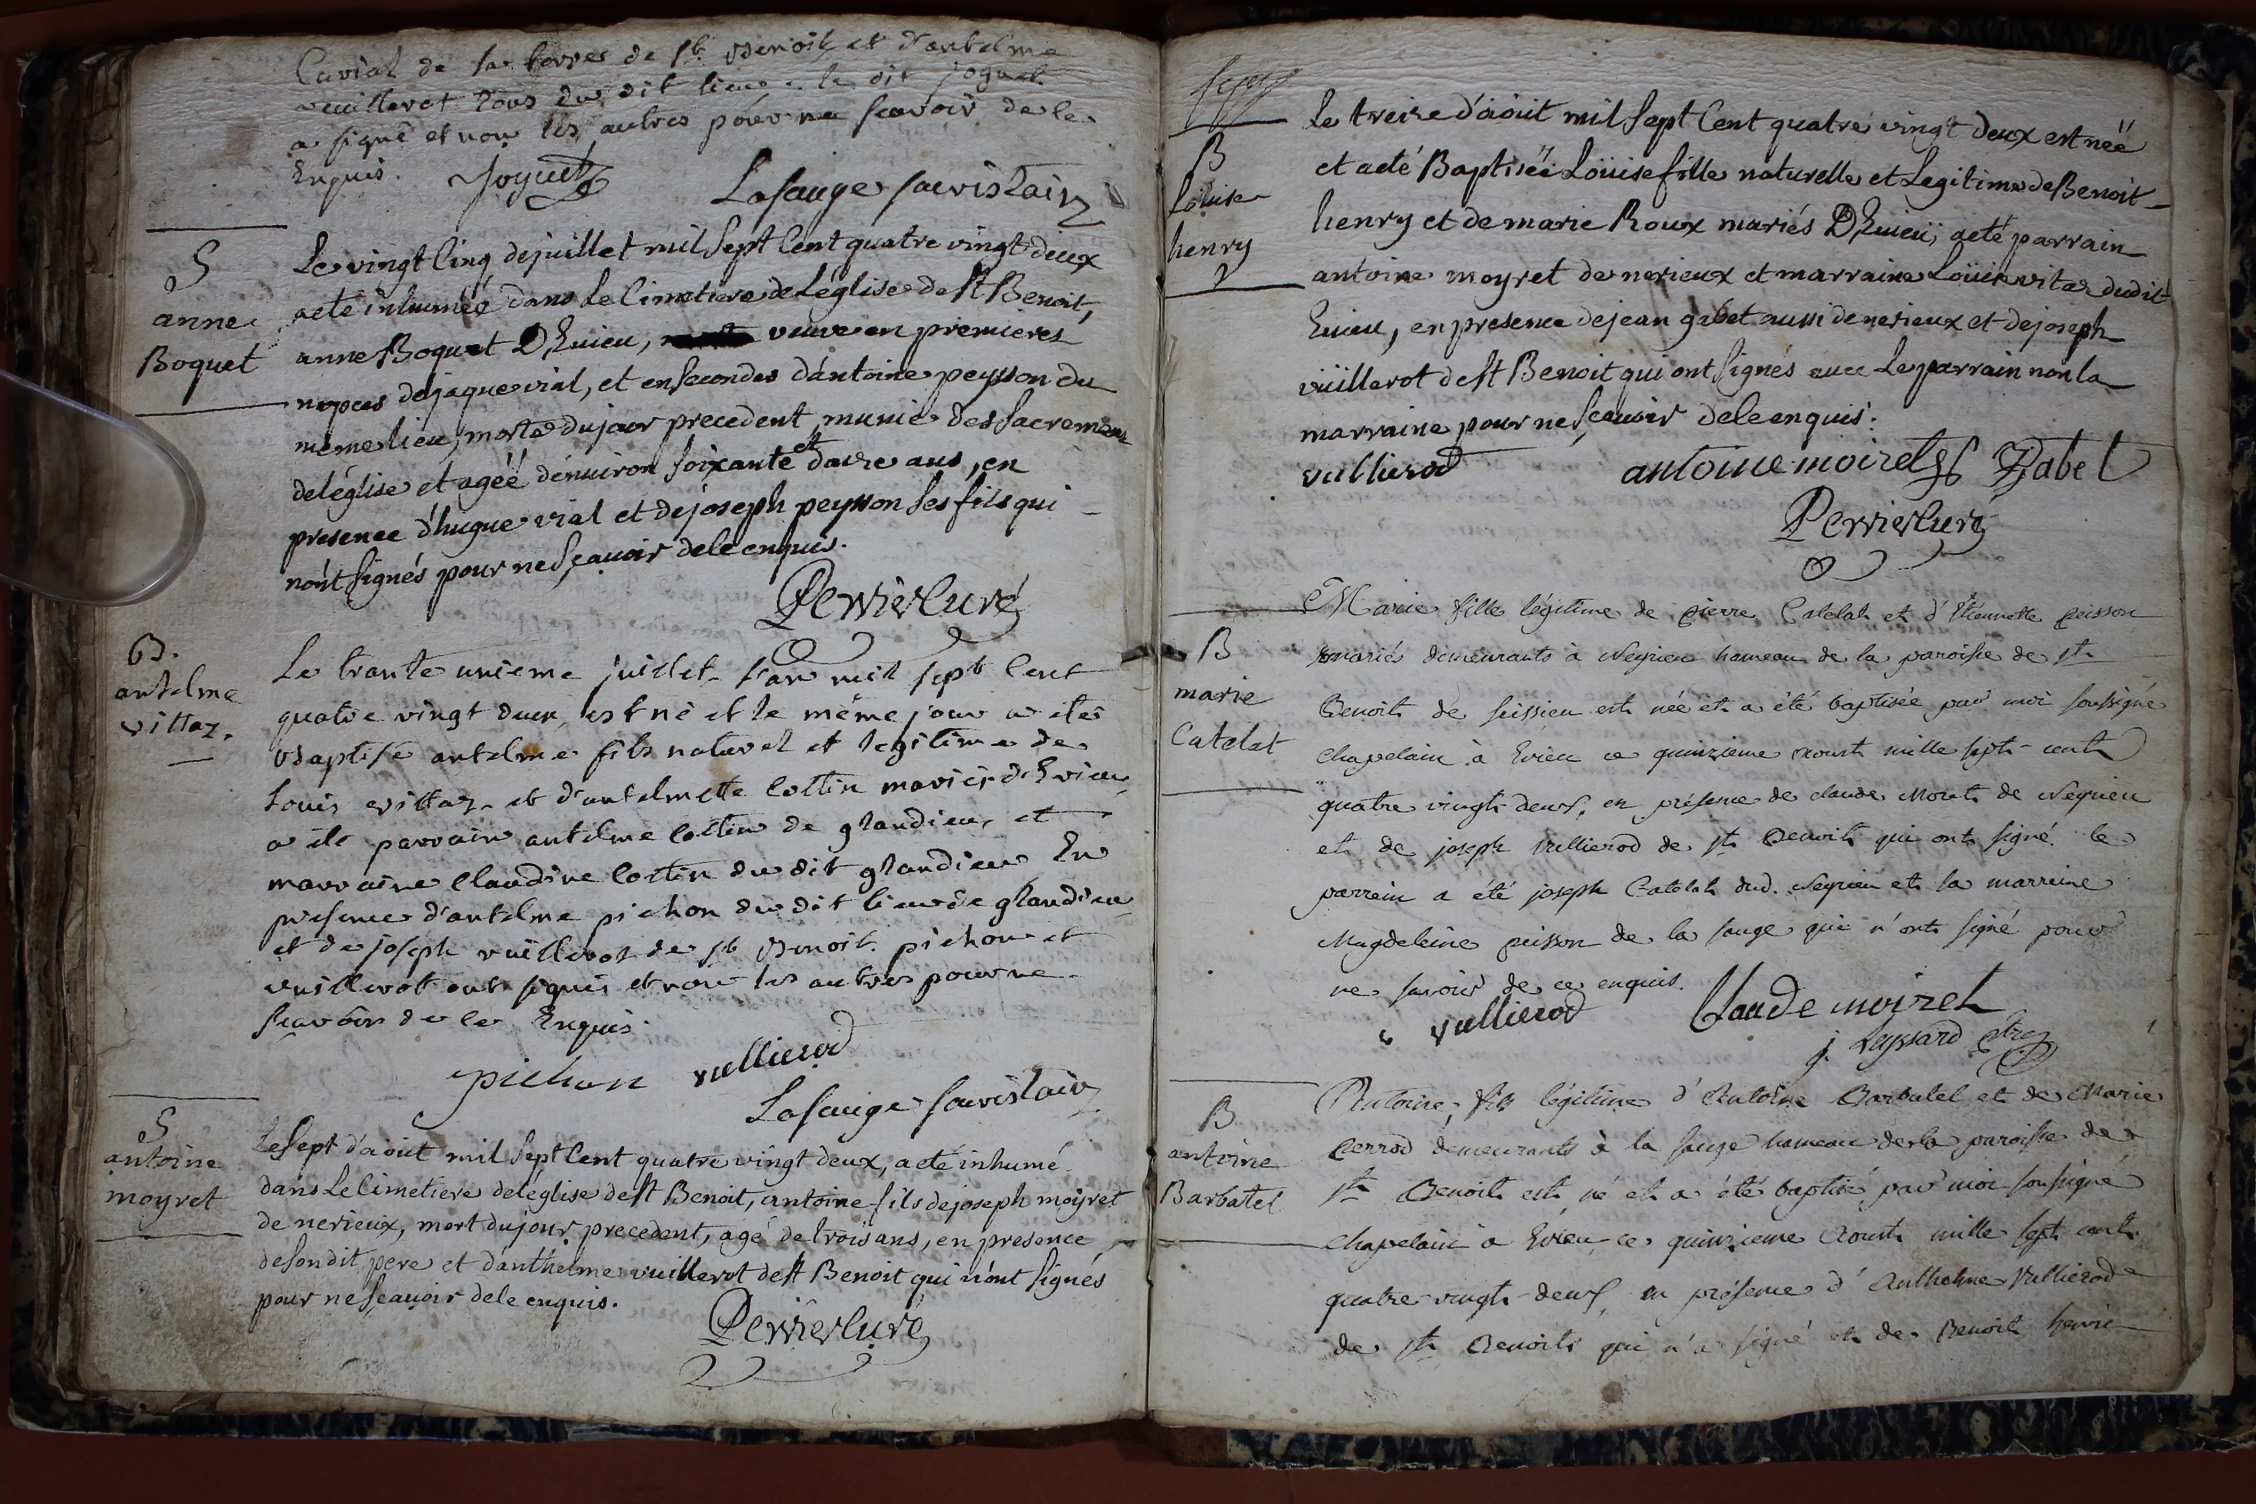 Curial de la terres de St. Benoit et d'antelme
vuillerot tous du dit lieu. le dit joguet
a signé et non les autres pour ne scavoir de le
Enquis. Joguet
Lasauge sacristain
S
anne
Boquet
Le vingt cinq de juillet mil sept Cent quatre vingt deux
a eté inhumeé dans le Cimetiere de Léglise de st Benoit,
anne Boquet D'Euieu, veuve en premieres
nopces de jaque vial, et en secondes d'antoine peysson du
même lieu, morte du jour precedent, munie des sacremens
de léglise et ageé d'environ soixante et douze ans, en
presence d'hugue vial et de joseph peysson ses fils qui
n'ont signés pour ne sçauoir de le enquis.
Perrier Curé
B.
antelme
vittaz.
Le trante unieme juillet l'an mil sept Cent
quatre vingt deux est né et le même jour a eté
Baptisé antelme fils naturel et legitime de
Louis vittaz et d'antelmette Cottin mariés d'Evieu
a eté parrain antelme Cottin de glandieu et
marraine Claudine Cottin du dit glandieu En
presence d'antelme pichon du dit lieu de glandieu
et de joseph vuillerot de st Benoit. pichon et
vuillerot ont signés et non les autres pour ne
sçavoir de le Enquis.
pichon vullierod
Lasauge sacristain
S
antoine
moyret
Le sept d'aoüt mil sept Cent quatre vingt deux, a eté inhumé
dans le Cimetiere de léglise de st Benoit, antoine fils de joseph moyret
de nerieux, mort du jour precedent, agé de trois ans, en presence
de son dit pere et d'anthelme vuillerot de st Benoit qui n'ont signés
pour ne sçauoir de le enquis.
Perrier Curé
B
Loüise
henry
Le treize d'aoüt mil sept Cent quatre vingt deux est neé
et a eté Baptiseé Loüise fille naturelle et Legitime de Benoit
henry et de marie Roux mariés D'Euieu; a eté parrain
antoine moyret de nerieux et marraine Loüise vitaz dudit
Euieu, en presence de jean gabet aussi de nerieux et de joseph
vüillerot de st Benoit qui ont signés avec Le parrain non la
marraine pour ne sçauoir de le enquis.
vullierod antoine moiret Gabet
Perrier Curé
B
marie
Catelat
Marie fille légitime de pierre Catelat et d'Etiennette peisson
mariés demeurants à Neyrieu hameau de la paroisse de st
Benoit de seissieu est née et a été baptisée par moi soussigné
chapelain à Evieu ce quinzieme aoust mille sept-cent
quatre vingt deux, en présence de claude Moiret de Neyrieu
et de joseph vullierod de st Benoit qui ont signé. le
parrein a été joseph Catelat dud. Neyrieu et la marreine
Magdeleine peisson de la sauge qui n'ont signé pour
ne savoir de ce enquis.
vullierod Claude moiret
j. Leyssard ptre
B
antoine
Barbatel
Antoine, fils légitime d'Antoine Barbatel et de Marie
perrod demeurants à la sauge hameau de la paroisse de
st Benoit est né et a été baptisé par moi soussigné
chapelain à Evieu ce quinzieme Aoust mille sept cent
quatre-vingt-deux, en présence d'Anthelme vullierod
de st Benoit qui n'a signé et de Benoit henrie